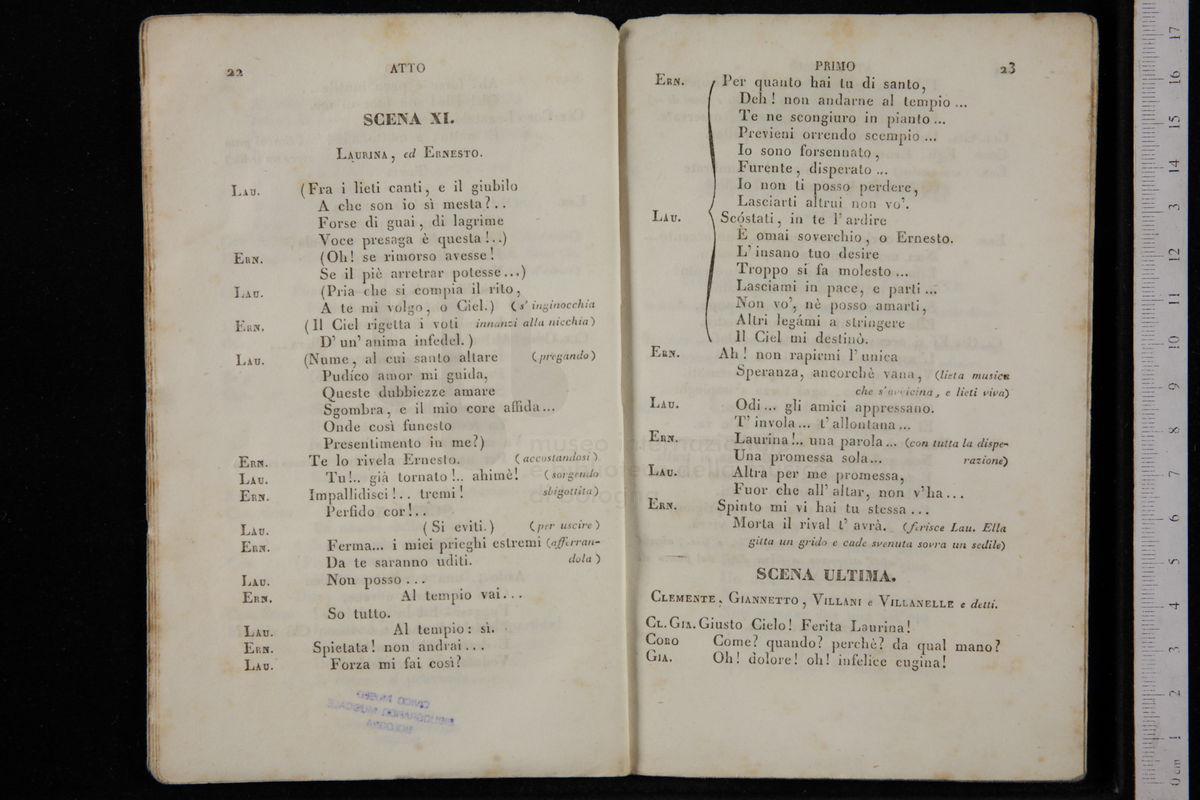 22
ATTO
SCENA XI.
LAURINA, ed ERNESTO.
LAU. (Fra i lieti canti, e il giubilo
A che son io sì mesta?..
Forse di guai, di lagrime
Voce presaga è questa!..)
ERN. (Oh! se rimorso avesse!
Se il piè arretrar potesse...)
LAU. (Pria che si compia il rito,
A te mi volgo, o Ciel.) (s' inginocchia
ERN. (Il Ciel rigetta i voti innanzi alla nicchia)
D' un' anima infedel.)
LAU. (Nume, al cui santo altare (pregando)
Pudico amor mi guida,
Queste dubbiezze amare
Sgombra, e il mio core affida...
Onde così funesto
Presentimento in me?)
ERN. Te lo rivela Ernesto. (accostandosi)
LAU. Tu!.. già tornato!.. ahimè! (sorgendo
ERN. Impallidisci!.. tremi! sbigottita)
Perfido cor!..
LAU. (Si eviti.) (per uscire)
ERN. Ferma... i miei prieghi estremi (afferran-
Da te saranno uditi. dola)
LAU. Non posso...
ERN. Al tempio vai...
So tutto.
LAU. Al tempio: sì.
ERN. Spietata! non andrai...
LAU. Forza mi fai così?
CIVICO MUSEO
BIBLIOGRAFICO MUSICALE
BOLOGNA
PRIMO
23
ERN. Per quanto hai tu di santo,
Deh! non andarne al tempio...
Te ne scongiuro in pianto...
Previeni orrendo scempio...
Io sono forsennato,
Furente, disperato...
Io non ti posso perdere,
Lasciarti altrui non vo'.
LAU. Scóstati, in te l' ardire
È omai soverchio, o Ernesto.
L' insano tuo desire
Troppo si fa molesto...
Lasciami in pace, e parti...
Non vo', nè posso amarti,
Altri legámi a stringere
Il Ciel mi destinò.
ERN. Ah! non rapirmi l' unica
Speranza, ancorchè vana, (lieta musica
che s'avvicina, e lieti viva)
LAU. Odi... gli amici appressano.
T' invola... t' allontana...
ERN. Laurina!.. una parola... (con tutta la dispe-
Una promessa sola... razione)
LAU. Altra per me promessa,
Fuor che all' altar, non v'ha...
ERN. Spinto mi vi hai tu stessa...
Morta il rival t' avrà. (ferisce Lau. Ella
gitta un grido e cade svenuta sovra un sedile)
SCENA ULTIMA.
CLEMENTE, GIANNETTO, VILLANI e VILLANELLE e detti.
CL. GIA. Giusto Cielo! Ferita Laurina!
CORO Come? quando? perchè? da qual mano?
GIA. Oh! dolore! oh! infelice cugina!
museo
0 cm 1 2 3 4 5 6 7 8 9 10 11 12 13 14 15 16 17